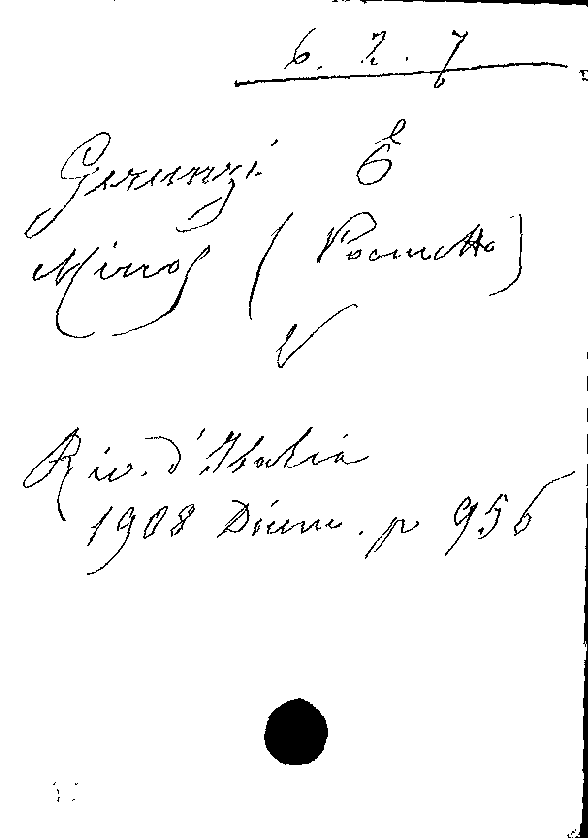 6. 2. 7
Gerunzi E
Minos (Poemetto)
V
Riv. d'Italia
1908 Dicem. p 956